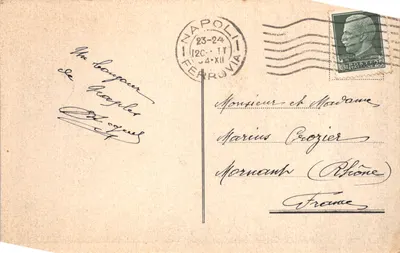 NAPOLI
23-24
34-XII
FERROVIA
Un bonjour
de Naples
Monsieur et Madame
Marius Crozier
Mornant (Rhône)
France